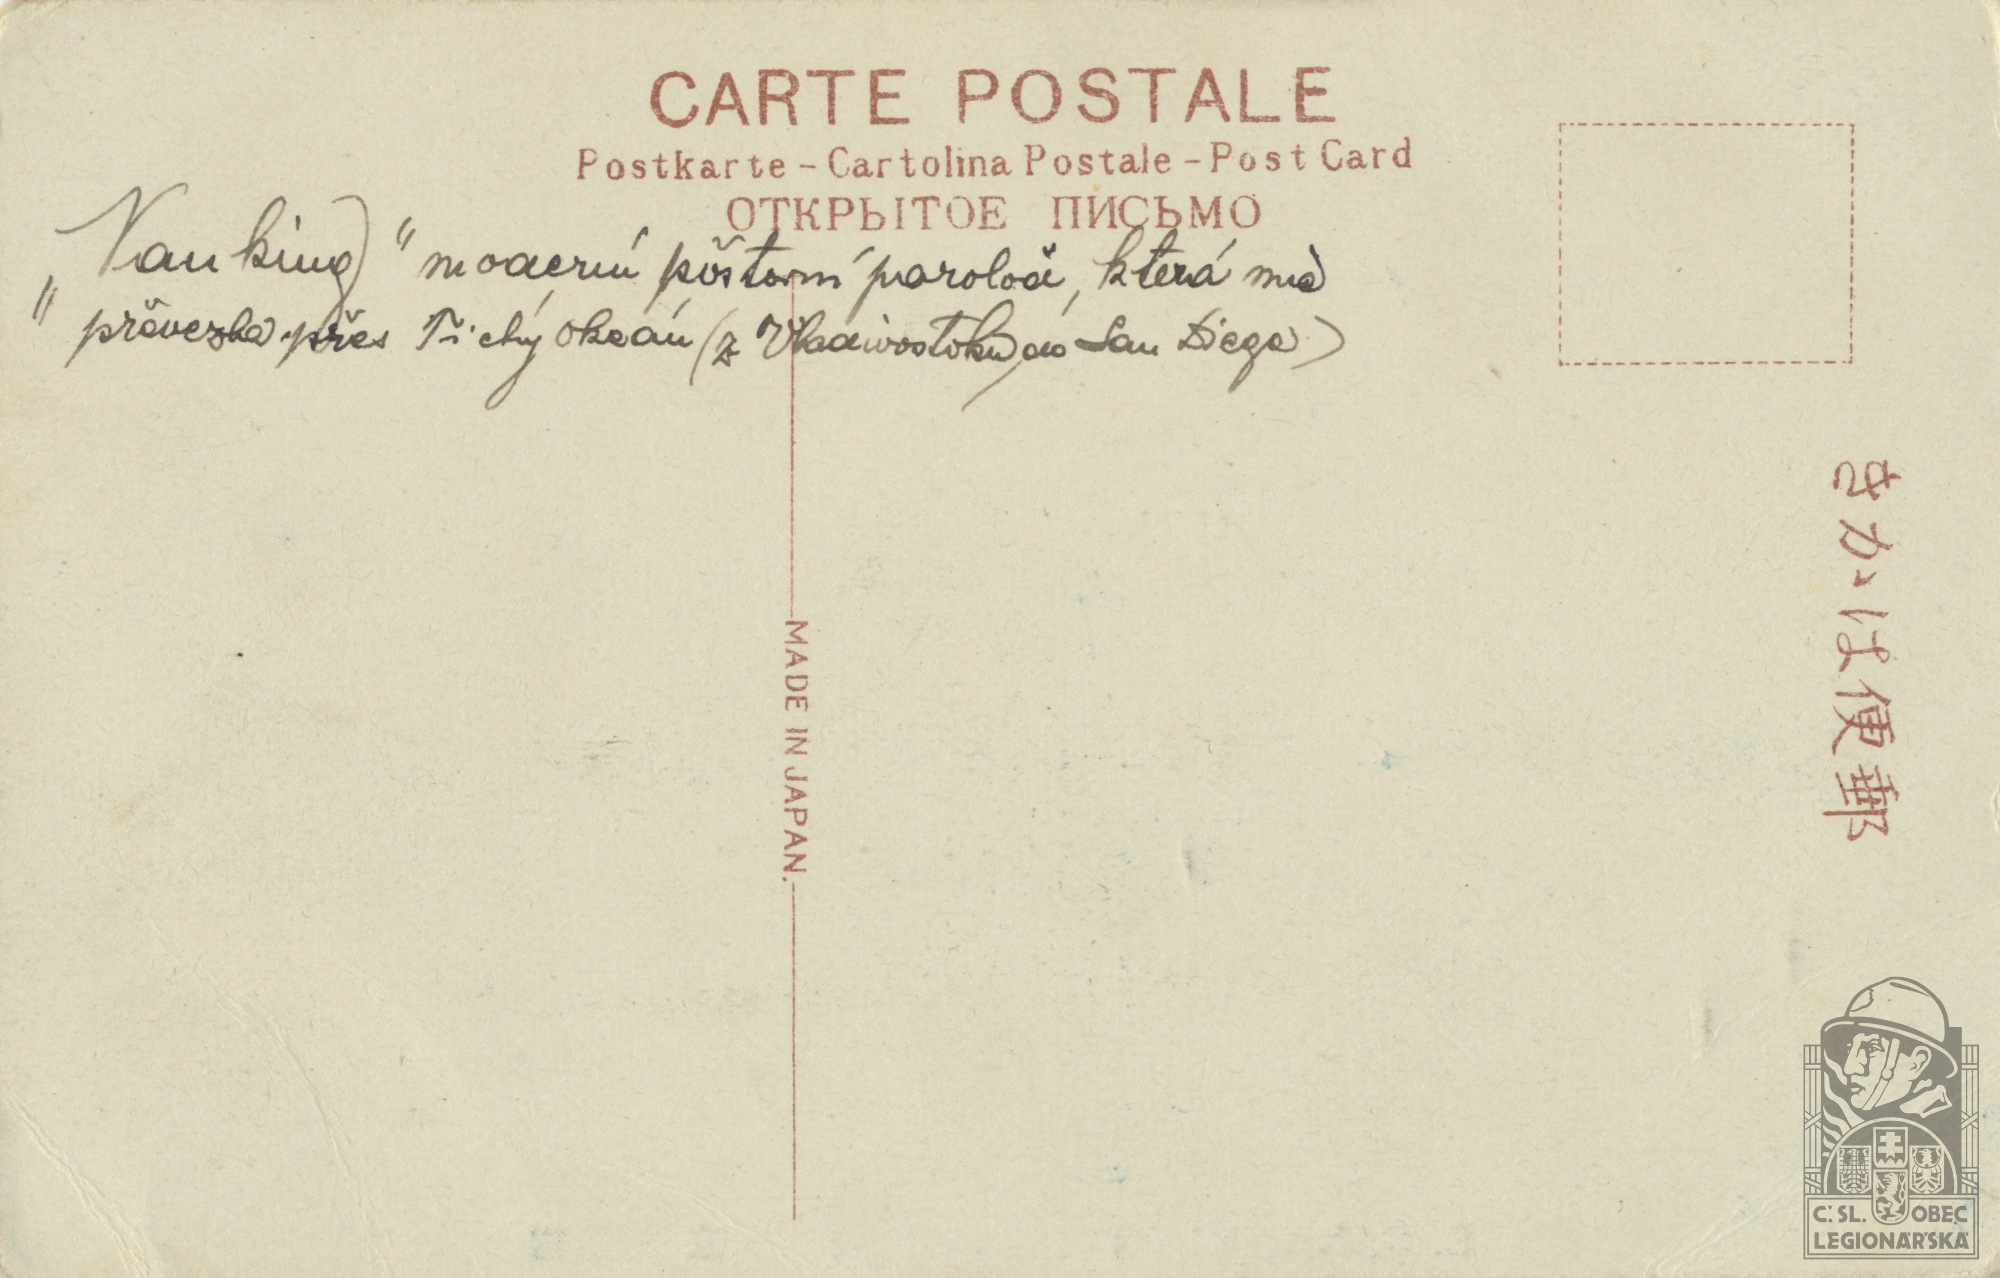 CARTE POSTALE
Postkarte – Cartolina Postale – Post Card
ОТКРЫТОЕ ПИСЬМО
„Nanking" moderní poštovní paroloď, která nás
převezla přes Tichý okeán (z Vladivostoku do San Diega)
MADE IN JAPAN.
きかゝは便郵
Č.SL. OBEC
LEGIONÁŘSKÁ